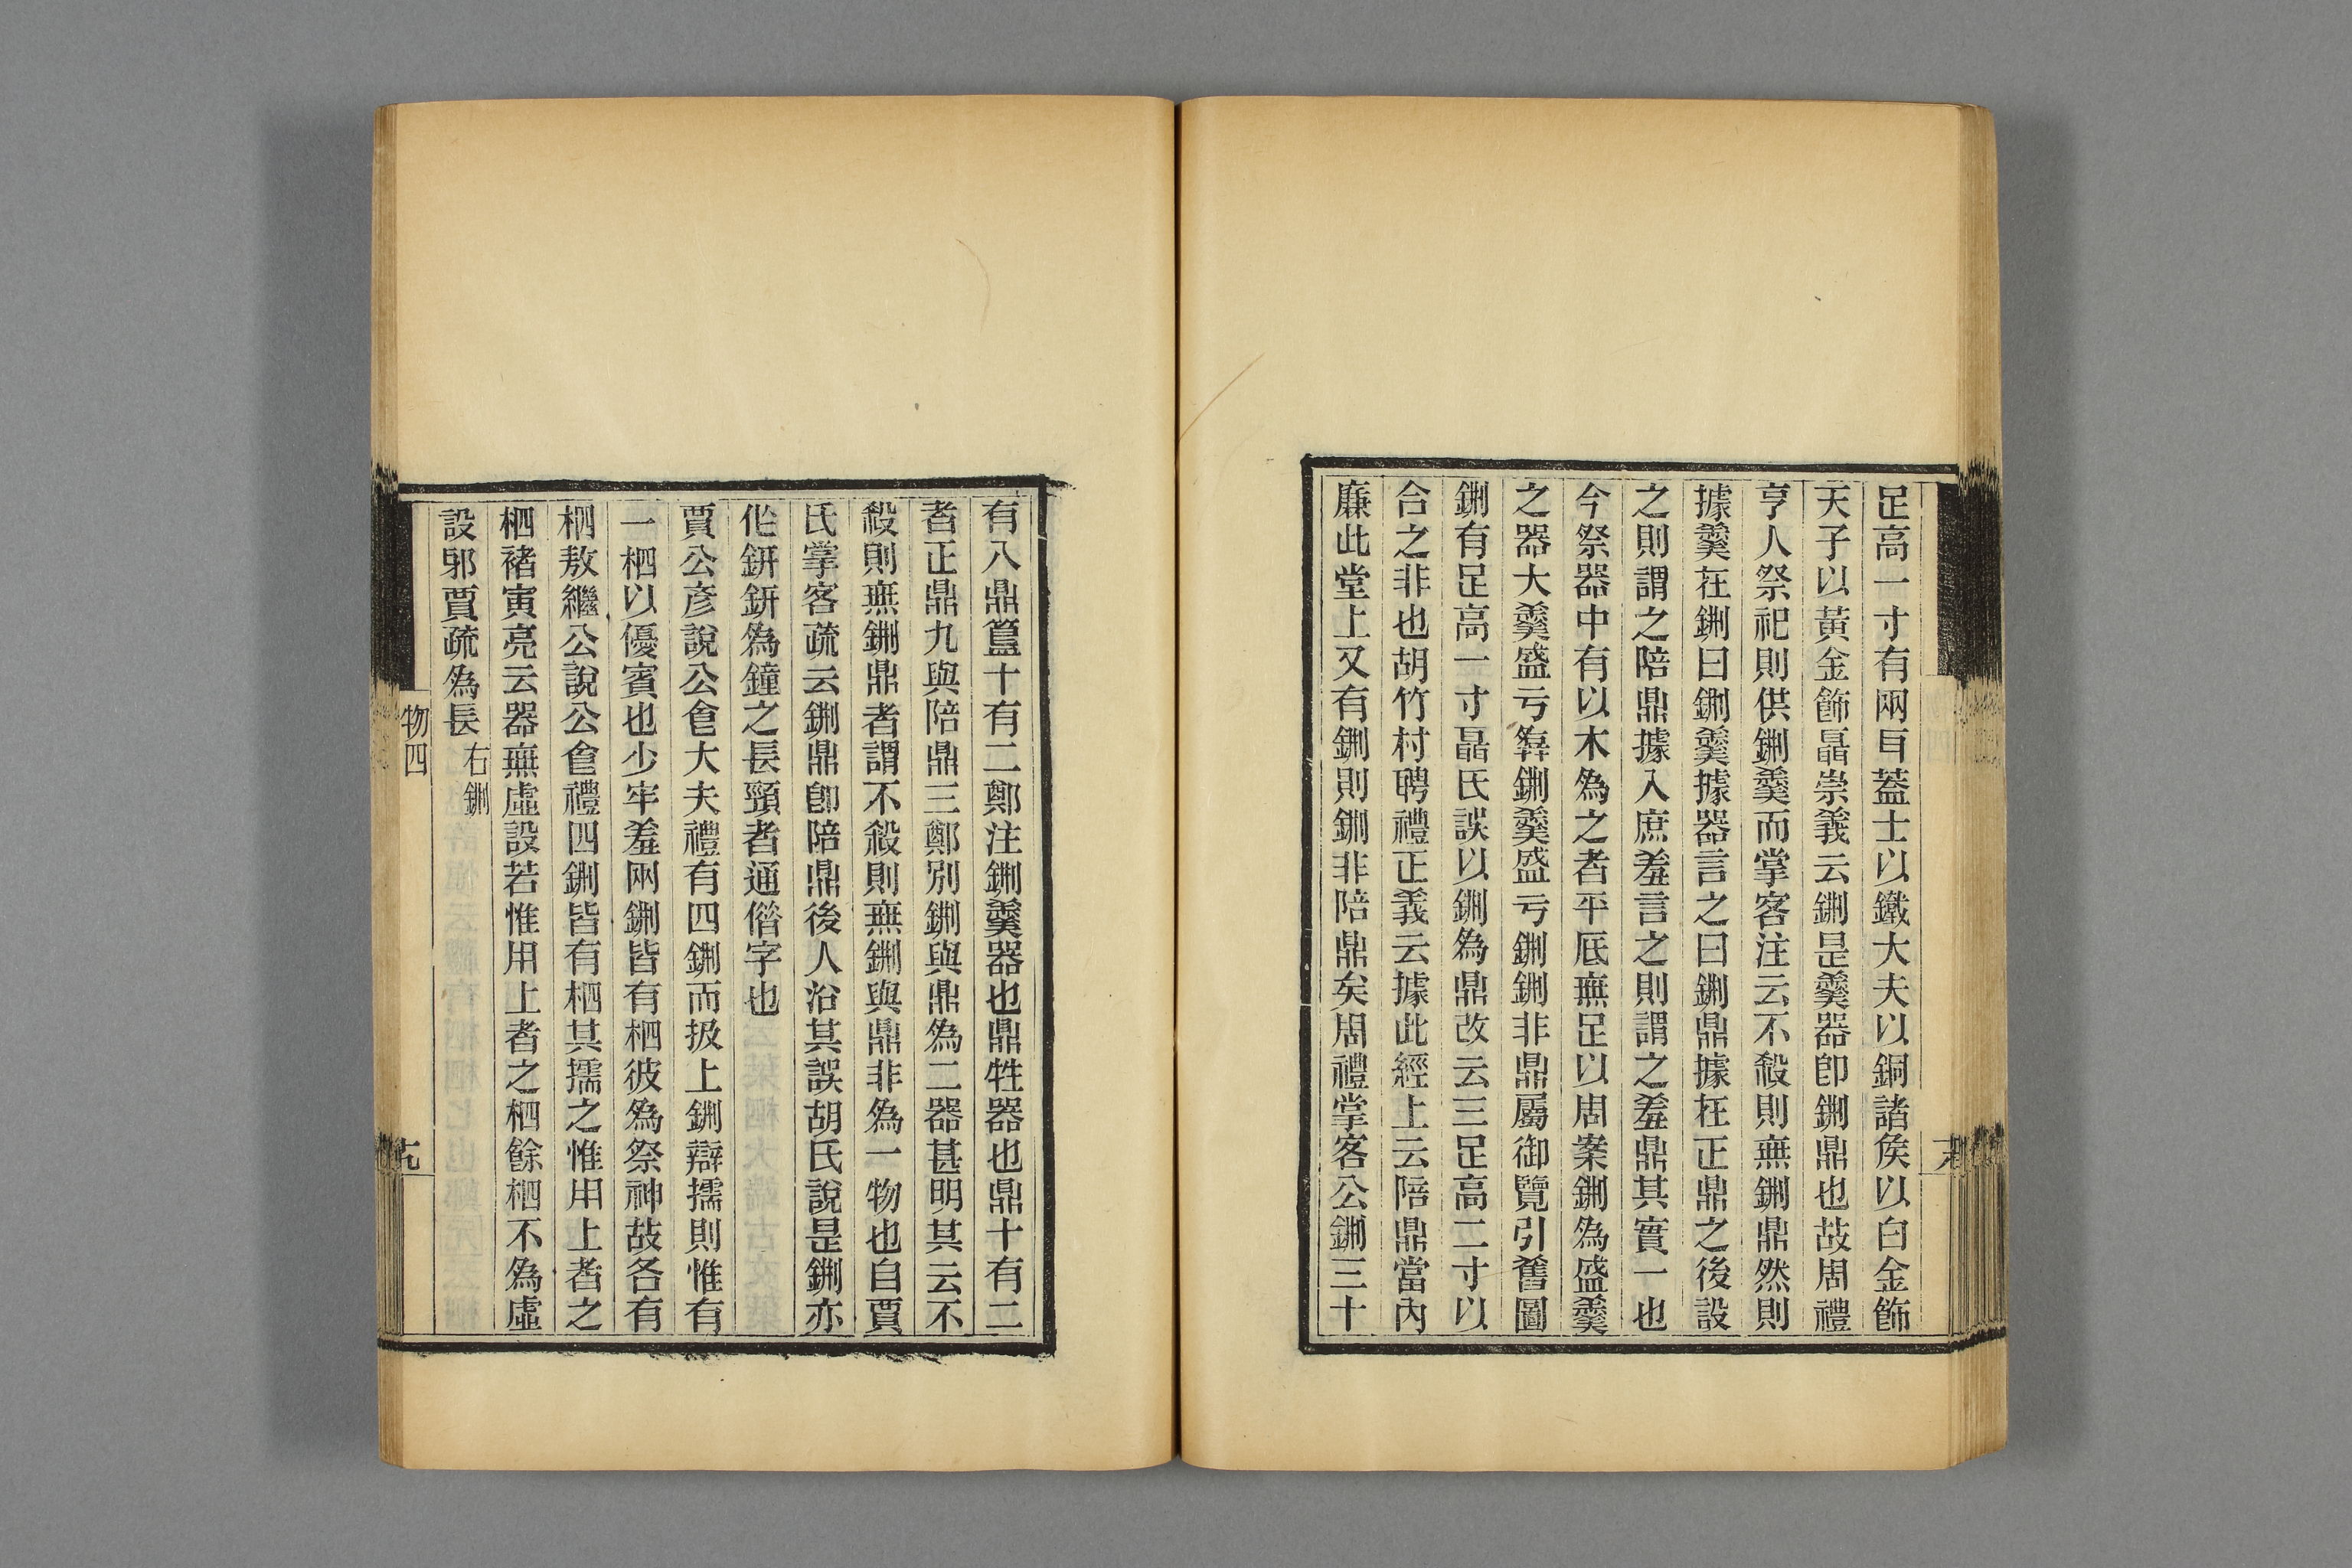 足高一寸有兩耳蓋士以鐵大夫以銅諸矦以白金飾
天子以黃金飾聶崇義云鉶是羹器卽鉶鼎也故周禮
亨人祭祀則供鉶羹而掌客注云不殺則無鉶鼎然則
據羹在鉶曰鉶羹據器言之曰鉶鼎據在正鼎之後設
之則謂之陪鼎據入庶羞言之則謂之羞鼎其實一也
今祭器中有以木爲之者平底無足以周案鉶爲盛羹
之器大羹盛亏鐙鉶羹盛亏鉶鉶非鼎屬御覽引舊圖
鉶有足高一寸聶氏誤以鉶爲鼎改云三足高二寸以
合之非也胡竹村聘禮正義云據此經上云陪鼎當內
廉此堂上又有鉶則鉶非陪鼎矣周禮掌客公鉶三十
有八鼎簋十有二鄭注鉶羹器也鼎牲器也鼎十有二
者正鼎九與陪鼎三鄭別鉶與鼎爲二器甚明其云不
殺則無鉶鼎者謂不殺則無鉶與鼎非爲一物也自賈
氏掌客疏云鉶鼎卽陪鼎後人沿其誤胡氏說是鉶亦
作鈃鈃爲鐘之長頸者通偕字也
賈公彥說公食大夫禮有四鉶而扱上鉶辯擩則惟有
一柶以優賓也少牢羞兩鉶皆有柶彼爲祭神故各有
柶敖繼公說公食禮四鉶皆有柶其擩之惟用上者之
柶褚寅亮云器無虛設若惟用上者之柶餘柶不爲虛
設邪賈疏爲長 右鉶
物四